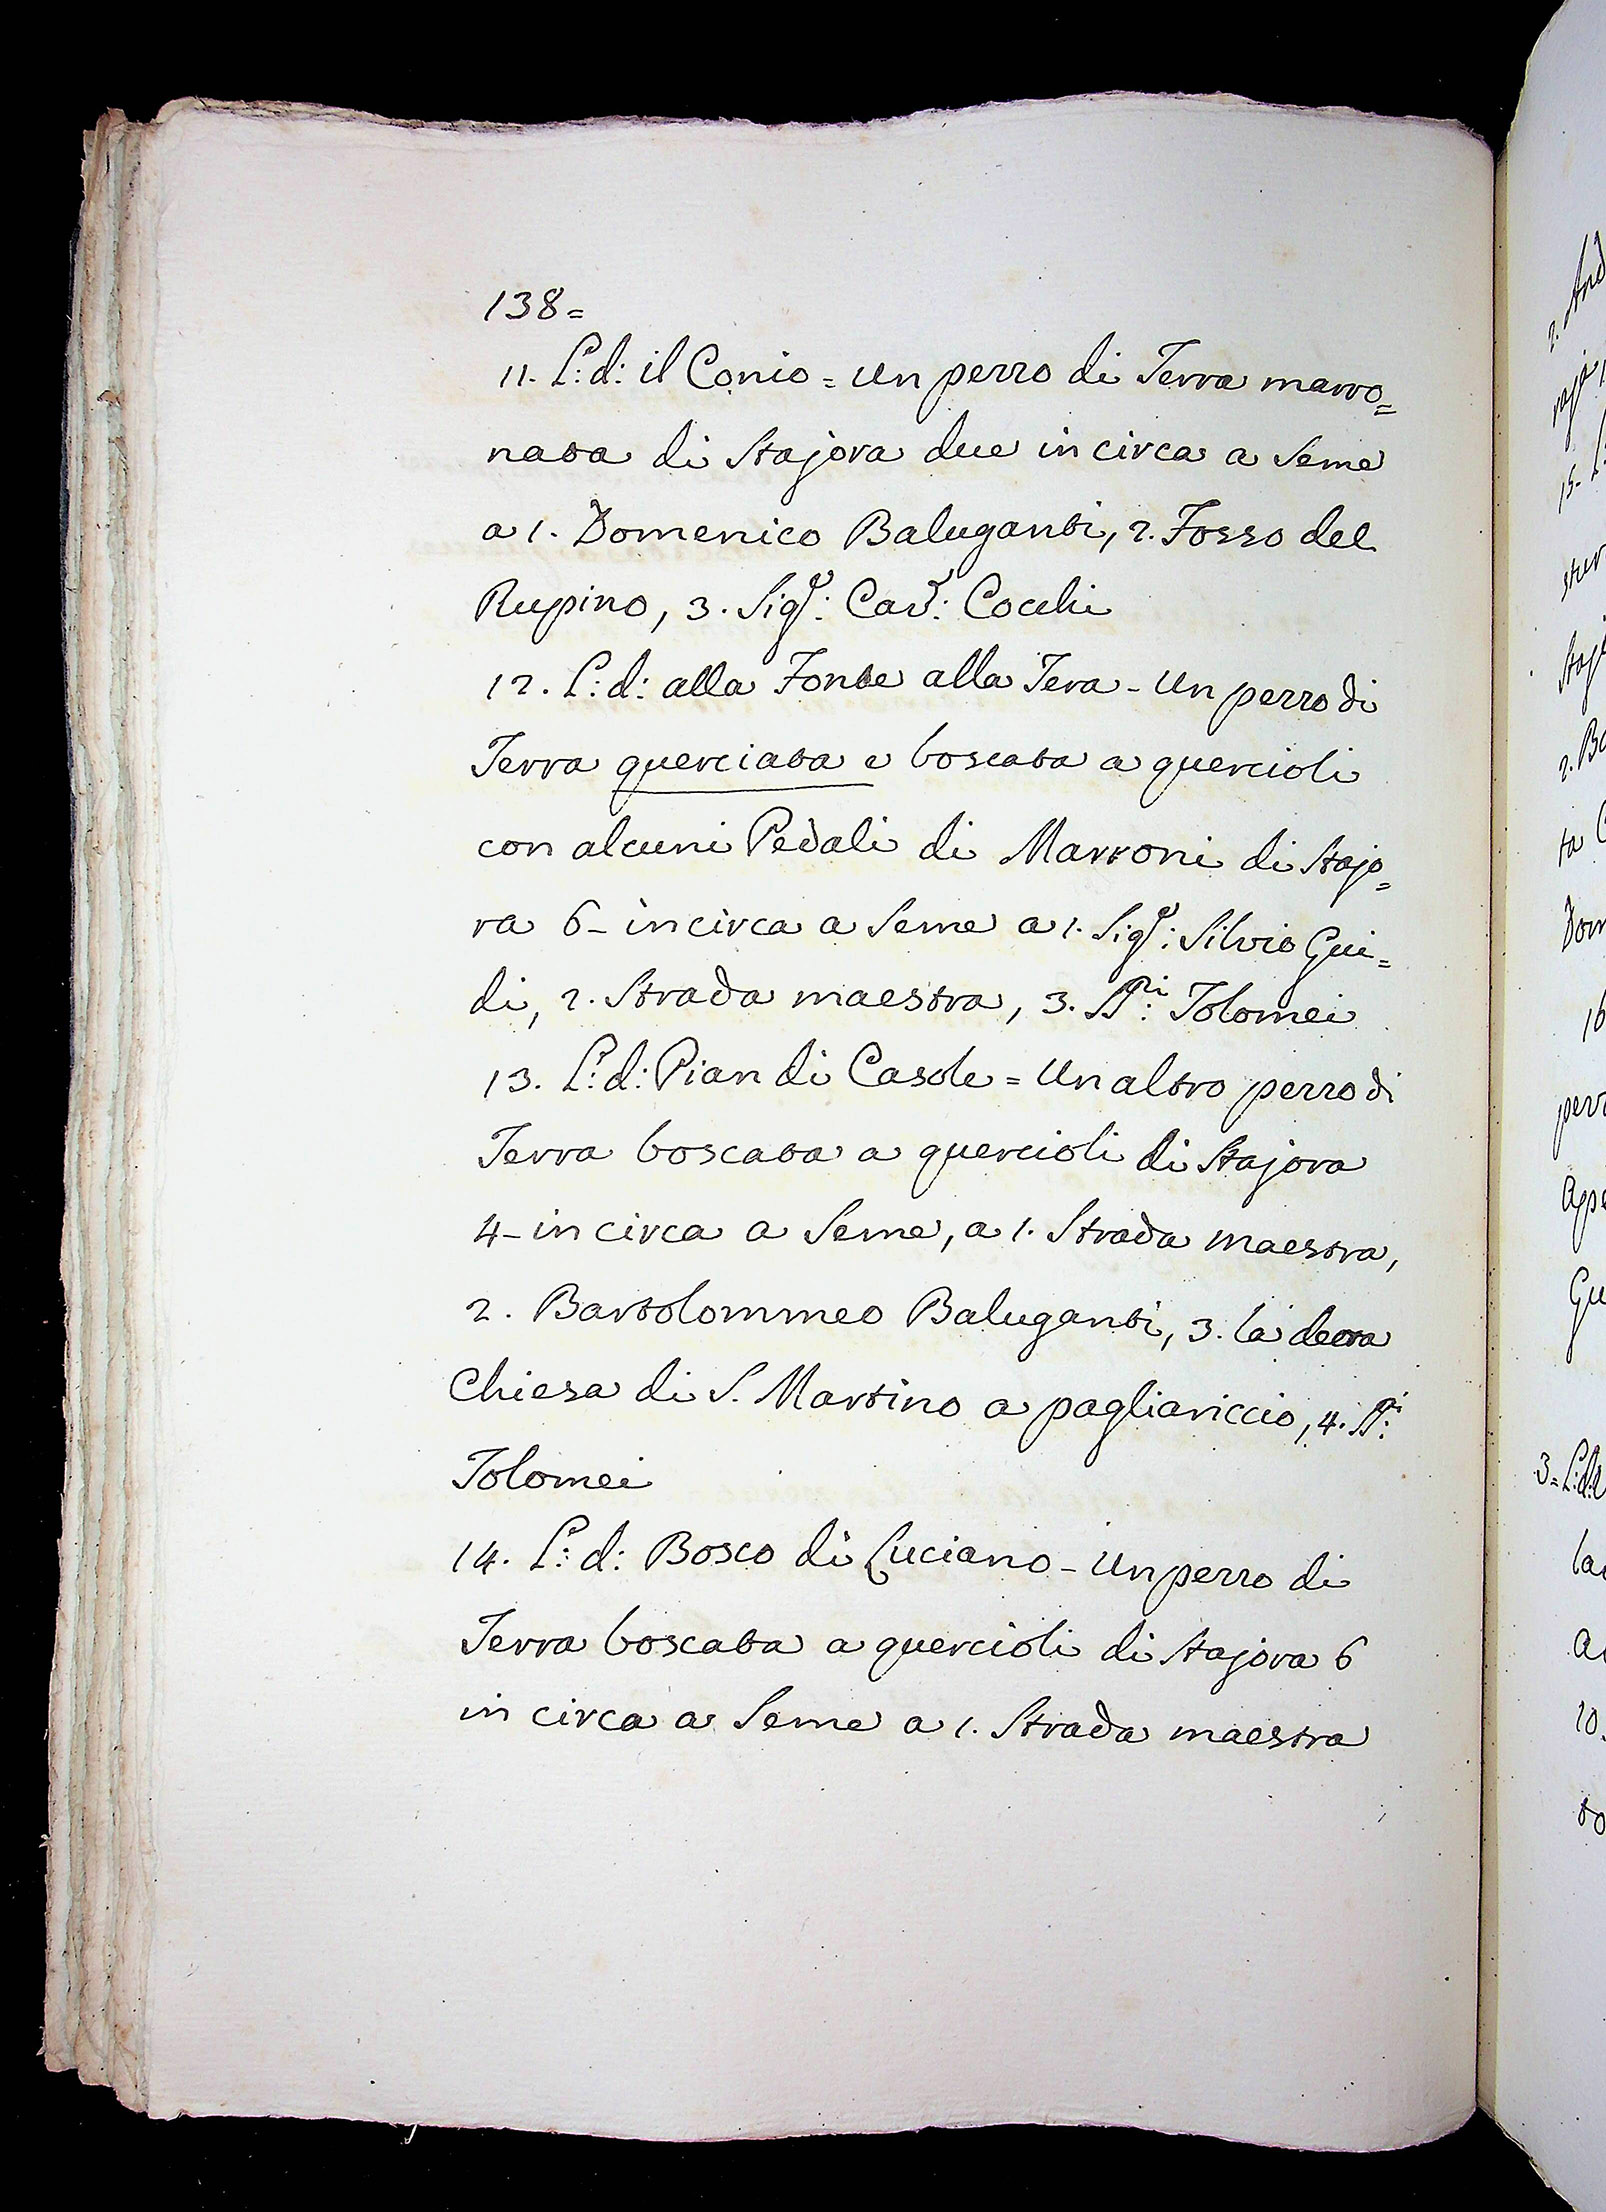 138=
11. L: d: il Conio = Un pezzo di Terra marro=
nata di Stajora due in circa a Seme
a 1. Domenico Baluganti, 2. Fosso del
Rupino, 3. Sigr: Cav.: Cocchi
12. L: d: alla Fonte alla Tera - Un pezzo di
Terra querciata e boscata a quercioli
con alcuni Pedali di Marroni di Stajo=
ra 6 - in circa a Seme a 1. Sigr: Silvio Gui=
di, 2. Strada maestra, 3. SSri: Tolomei
13. L: d: Pian di Casole = Un altro pezzo di
Terra boscata a quercioli di Stajora
4 - in circa a Seme, a 1. Strada maestra,
2. Bartolommeo Baluganti, 3. la detta
Chiesa di S. Martino a pagliariccio, 4. SSri:
Tolomei
14. L: d: Bosco di Luciano - Un pezzo di
Terra boscata a quercioli di Stajora 6
in circa a Seme a 1. Strada maestra